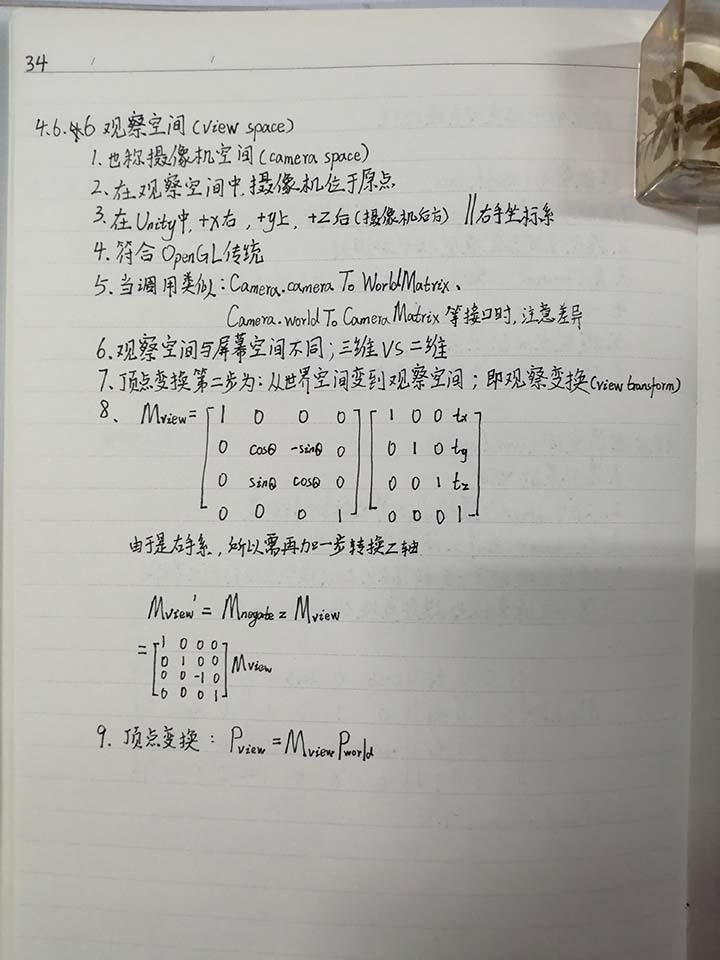 34
4.6.6 观察空间(view space)
1. 也称摄像机空间(camera space)
2. 在观察空间中,摄像机位于原点
3. 在Unity中,+x右,+y上,+z后(摄像机后方) //右手坐标系
4. 符合OpenGL传统
5. 当调用类似:Camera.cameraToWorldMatrix、
Camera.worldToCameraMatrix等接口时,注意差异
6. 观察空间与屏幕空间不同;三维VS二维
7. 顶点变换第二步为:从世界空间变到观察空间;即观察变换(view transform)
8、 Mview= [1 0 0 0] [1 0 0 tx]
0 cosθ -sinθ 0 0 1 0 ty
0 sinθ cosθ 0 0 0 1 tz
0 0 0 1 0 0 0 1
由于是右手系,所以需再加一步转换Z轴
Mview' = Mnegate z Mview
= [1 0 0 0
0 1 0 0
0 0 -1 0
0 0 0 1] Mview
9. 顶点变换: Pview = Mview Pworld